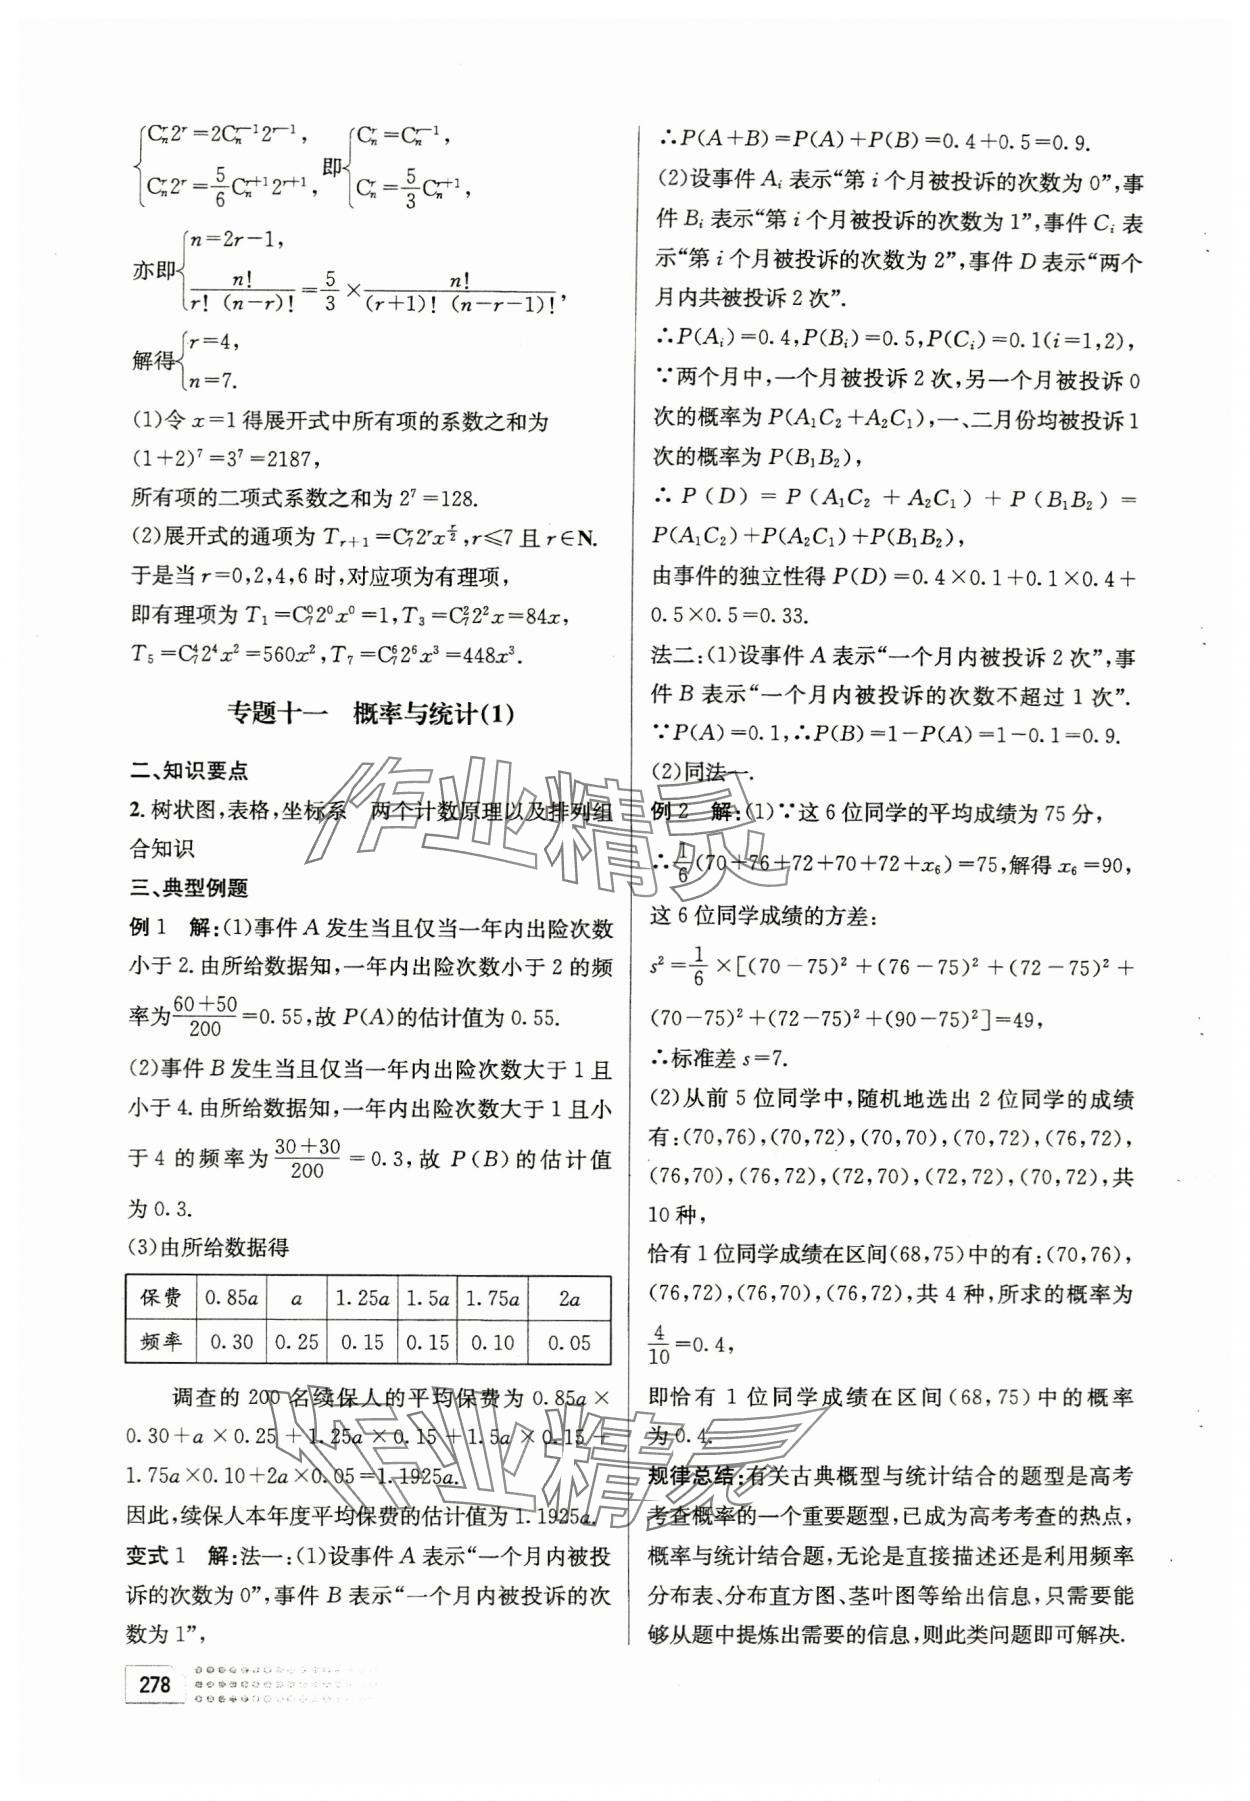 {C_n^r 2^r=2C_n^{r-1}2^{r-1}, C_n^r 2^r=5/6 C_n^{r+1}2^{r+1}, 即{C_n^r=C_n^{r-1}, C_n^r=5/3 C_n^{r+1},
亦即{n=2r-1, n!/(r!(n-r)!)=5/3×n!/((r+1)!(n-r-1)!),
解得{r=4, n=7.
(1)令 x=1得展开式中所有项的系数之和为
(1+2)⁷=3⁷=2187,
所有项的二项式系数之和为 2⁷=128.
(2)展开式的通项为 T_{r+1}=C_7^r 2^r x^{r/2},r≤7且 r∈N.
于是当 r=0,2,4,6时,对应项为有理项,
即有理项为 T₁=C_7^0 2⁰x⁰=1,T₃=C_7^2 2²x=84x,
T₅=C_7^4 2⁴x²=560x²,T₇=C_7^6 2⁶x³=448x³.
专题十一 概率与统计(1)
二、知识要点
2. 树状图,表格,坐标系 两个计数原理以及排列组
合知识
三、典型例题
例1 解:(1)事件 A 发生当且仅当一年内出险次数
小于2.由所给数据知,一年内出险次数小于2的频
率为(60+50)/200=0.55,故 P(A)的估计值为0.55.
(2)事件 B 发生当且仅当一年内出险次数大于1且
小于4.由所给数据知,一年内出险次数大于1且小
于4的频率为(30+30)/200=0.3,故 P(B)的估计值
为0.3.
(3)由所给数据得
保费 0.85a a 1.25a 1.5a 1.75a 2a
频率 0.30 0.25 0.15 0.15 0.10 0.05
调查的200名续保人的平均保费为 0.85a×
0.30+a×0.25+1.25a×0.15+1.5a×0.15+
1.75a×0.10+2a×0.05=1.1925a.
因此,续保人本年度平均保费的估计值为1.1925a.
变式1 解:法一:(1)设事件 A 表示“一个月内被投
诉的次数为0”,事件 B 表示“一个月内被投诉的次
数为1”,
278
∴P(A+B)=P(A)+P(B)=0.4+0.5=0.9.
(2)设事件 Aᵢ 表示“第 i 个月被投诉的次数为0”,事
件 Bᵢ 表示“第 i 个月被投诉的次数为1”,事件 Cᵢ 表
示“第 i 个月被投诉的次数为2”,事件 D 表示“两个
月内共被投诉2次”.
∴P(Aᵢ)=0.4,P(Bᵢ)=0.5,P(Cᵢ)=0.1(i=1,2),
∵两个月中,一个月被投诉2次,另一个月被投诉0
次的概率为 P(A₁C₂+A₂C₁),一、二月份均被投诉1
次的概率为 P(B₁B₂),
∴ P(D) = P(A₁C₂ + A₂C₁) + P(B₁B₂) =
P(A₁C₂)+P(A₂C₁)+P(B₁B₂),
由事件的独立性得 P(D)=0.4×0.1+0.1×0.4+
0.5×0.5=0.33.
法二:(1)设事件 A 表示“一个月内被投诉2次”,事
件 B 表示“一个月内被投诉的次数不超过1次”.
∵P(A)=0.1,∴P(B)=1-P(A)=1-0.1=0.9.
(2)同法一.
例2 解:(1)∵这6位同学的平均成绩为75分,
∴1/6(70+76+72+70+72+x₆)=75,解得 x₆=90,
这6位同学成绩的方差:
s²=1/6×[(70-75)²+(76-75)²+(72-75)²+
(70-75)²+(72-75)²+(90-75)²]=49,
∴标准差 s=7.
(2)从前5位同学中,随机地选出2位同学的成绩
有:(70,76),(70,72),(70,70),(70,72),(76,72),
(76,70),(76,72),(72,70),(72,72),(70,72),共
10种,
恰有1位同学成绩在区间(68,75)中的有:(70,76),
(76,72),(76,70),(76,72),共4种,所求的概率为
4/10=0.4,
即恰有1位同学成绩在区间(68,75)中的概率
为0.4.
规律总结:有关古典概型与统计结合的题型是高考
考查概率的一个重要题型,已成为高考考查的热点,
概率与统计结合题,无论是直接描述还是利用频率
分布表、分布直方图、茎叶图等给出信息,只需要能
够从题中提炼出需要的信息,则此类问题即可解决.
作业精灵
作业精灵